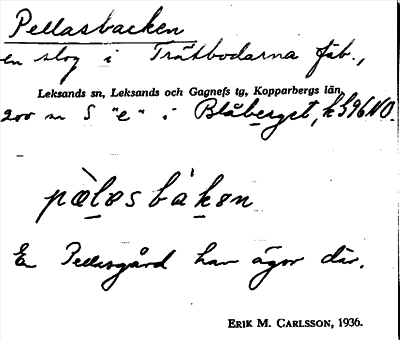 Pellasbacken
en slog i Trätbodarna fäb.,
Leksands sn, Leksands och Gagnefs tg, Kopparbergs län,
200 m S "e" i Blåberget, k 596 NO.
pæ̀lɑsbákɘn
En Pellasgård har ägor där.
ERIK M. CARLSSON, 1936.